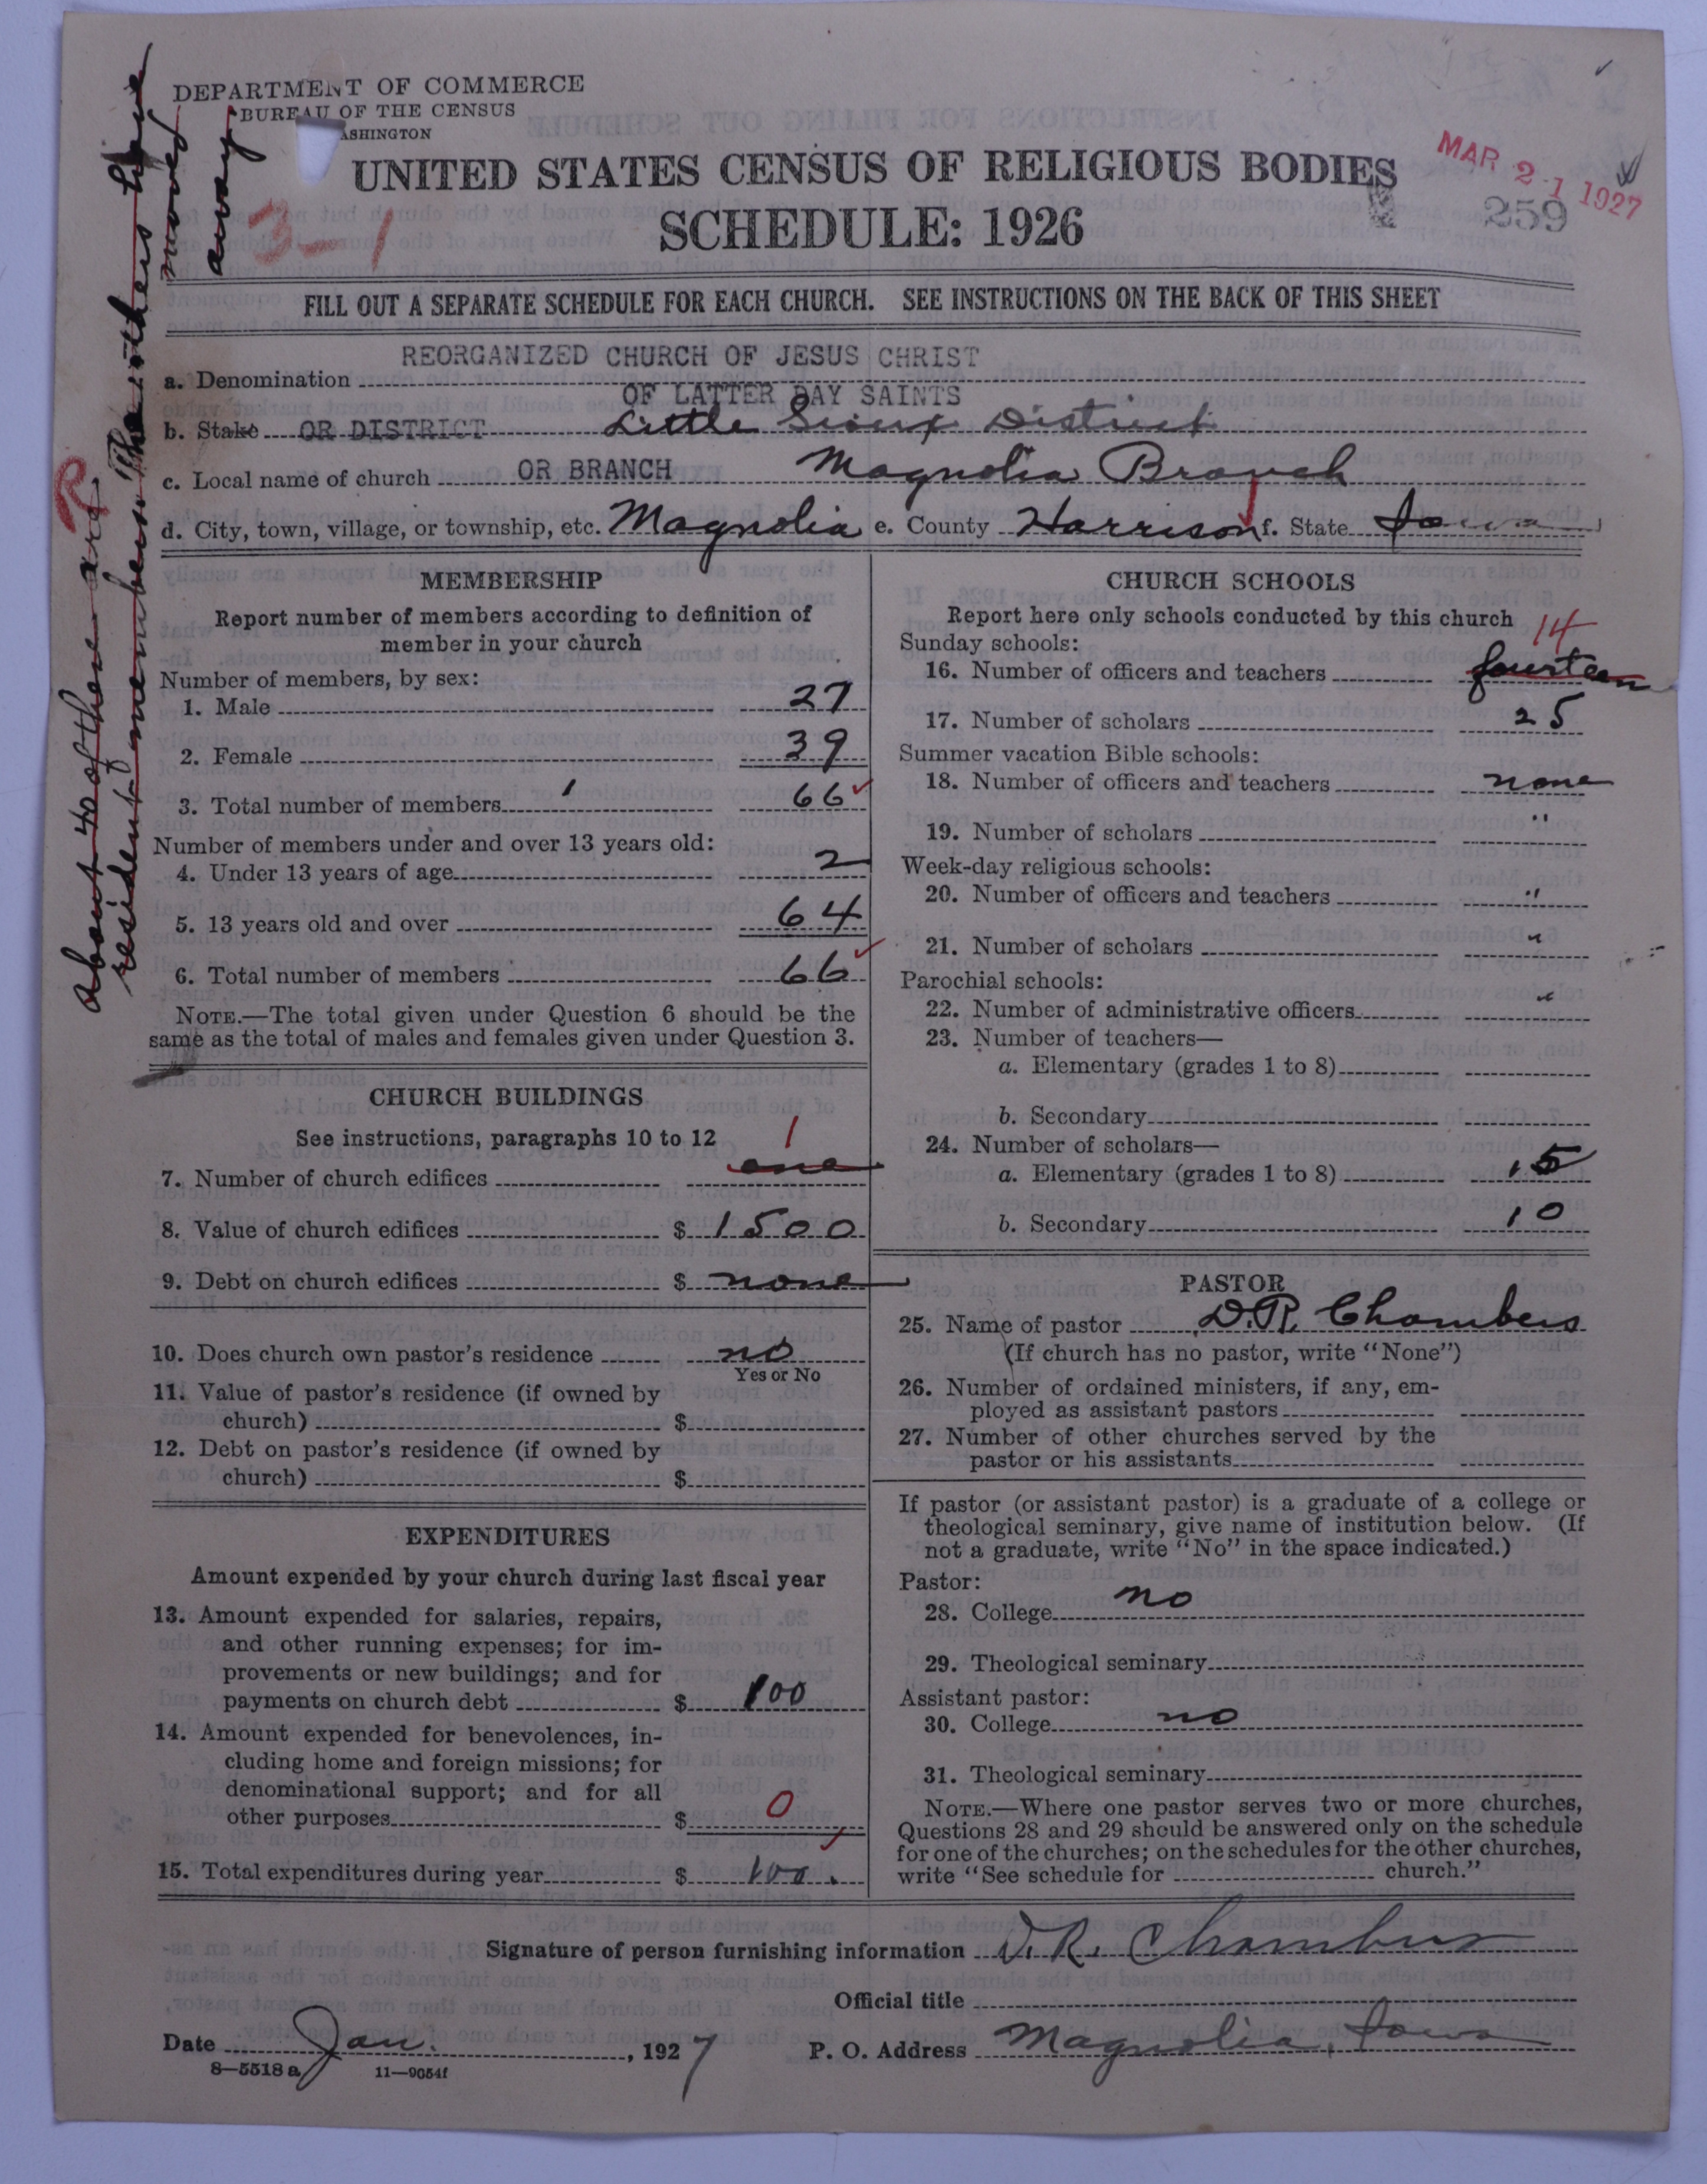 DEPARTMENT OF COMMERCE
BUREAU OF THE CENSUS
ASHINGTON
UNITED STATES CENSUS OF RELIGIOUS BODIES
SCHEDULE: 1926
MAR 21 1927
259
3-1
FILL OUT A SEPARATE SCHEDULE FOR EACH CHURCH. SEE INSTRUCTIONS ON THE BACK OF THIS SHEET
REORGANIZED CHURCH OF JESUS CHRIST
a. Denomination
OF LATTER DAY SAINTS
b. Stake OR DISTRICT Little Sioux District
c. Local name of church OR BRANCH Magnolia Branch
d. City, town, village, or township, etc. Magnolia e. County Harrison f. State Iowa
R
About 40 of these are
resident members. The others have
moved
away.
MEMBERSHIP
Report number of members according to definition of
member in your church
Number of members, by sex:
1. Male 27
2. Female 39
3. Total number of members 66
Number of members under and over 13 years old:
4. Under 13 years of age 2
5. 13 years old and over 64
6. Total number of members 66
NOTE.—The total given under Question 6 should be the
same as the total of males and females given under Question 3.
CHURCH BUILDINGS
See instructions, paragraphs 10 to 12
1
7. Number of church edifices one
8. Value of church edifices $ 1500
9. Debt on church edifices $ none
10. Does church own pastor's residence no
Yes or No
11. Value of pastor's residence (if owned by
church) $
12. Debt on pastor's residence (if owned by
church) $
EXPENDITURES
Amount expended by your church during last fiscal year
13. Amount expended for salaries, repairs,
and other running expenses; for im-
provements or new buildings; and for
payments on church debt $ 100
14. Amount expended for benevolences, in-
cluding home and foreign missions; for
denominational support; and for all
other purposes $ 0
15. Total expenditures during year $ 100.
CHURCH SCHOOLS
Report here only schools conducted by this church
Sunday schools: 14
16. Number of officers and teachers fourteen
17. Number of scholars 25
Summer vacation Bible schools:
18. Number of officers and teachers none
19. Number of scholars "
Week-day religious schools:
20. Number of officers and teachers "
21. Number of scholars "
Parochial schools:
22. Number of administrative officers "
23. Number of teachers—
a. Elementary (grades 1 to 8)
b. Secondary
24. Number of scholars—
a. Elementary (grades 1 to 8) 15
b. Secondary 10
PASTOR
25. Name of pastor D.R. Chambers
(If church has no pastor, write "None")
26. Number of ordained ministers, if any, em-
ployed as assistant pastors
27. Number of other churches served by the
pastor or his assistants
If pastor (or assistant pastor) is a graduate of a college or
theological seminary, give name of institution below. (If
not a graduate, write "No" in the space indicated.)
Pastor:
28. College no
29. Theological seminary
Assistant pastor:
30. College no
31. Theological seminary
NOTE.—Where one pastor serves two or more churches,
Questions 28 and 29 should be answered only on the schedule
for one of the churches; on the schedules for the other churches,
write "See schedule for church."
Signature of person furnishing information D. R. Chambers
Official title
Date Jan. , 1927 P. O. Address Magnolia, Iowa
8—5518 a 11—9054f